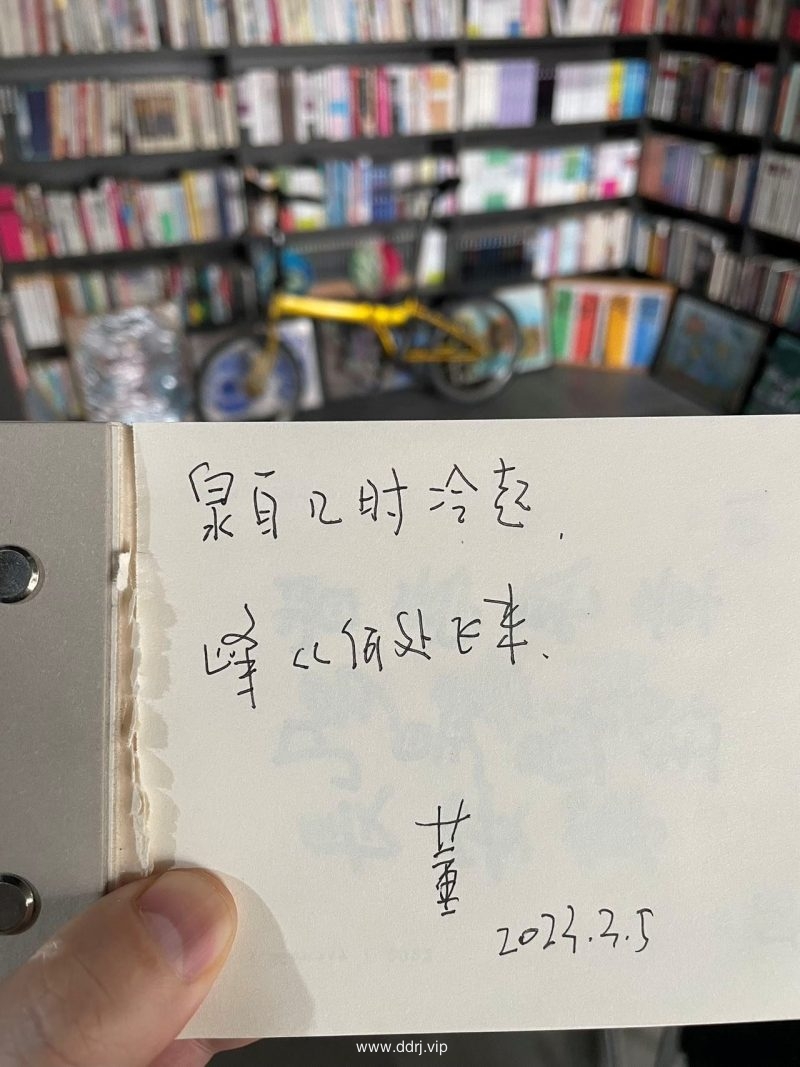 泉自几时冷起,
峰从何处飞来.
董
2023.2.5
www.ddrj.vip